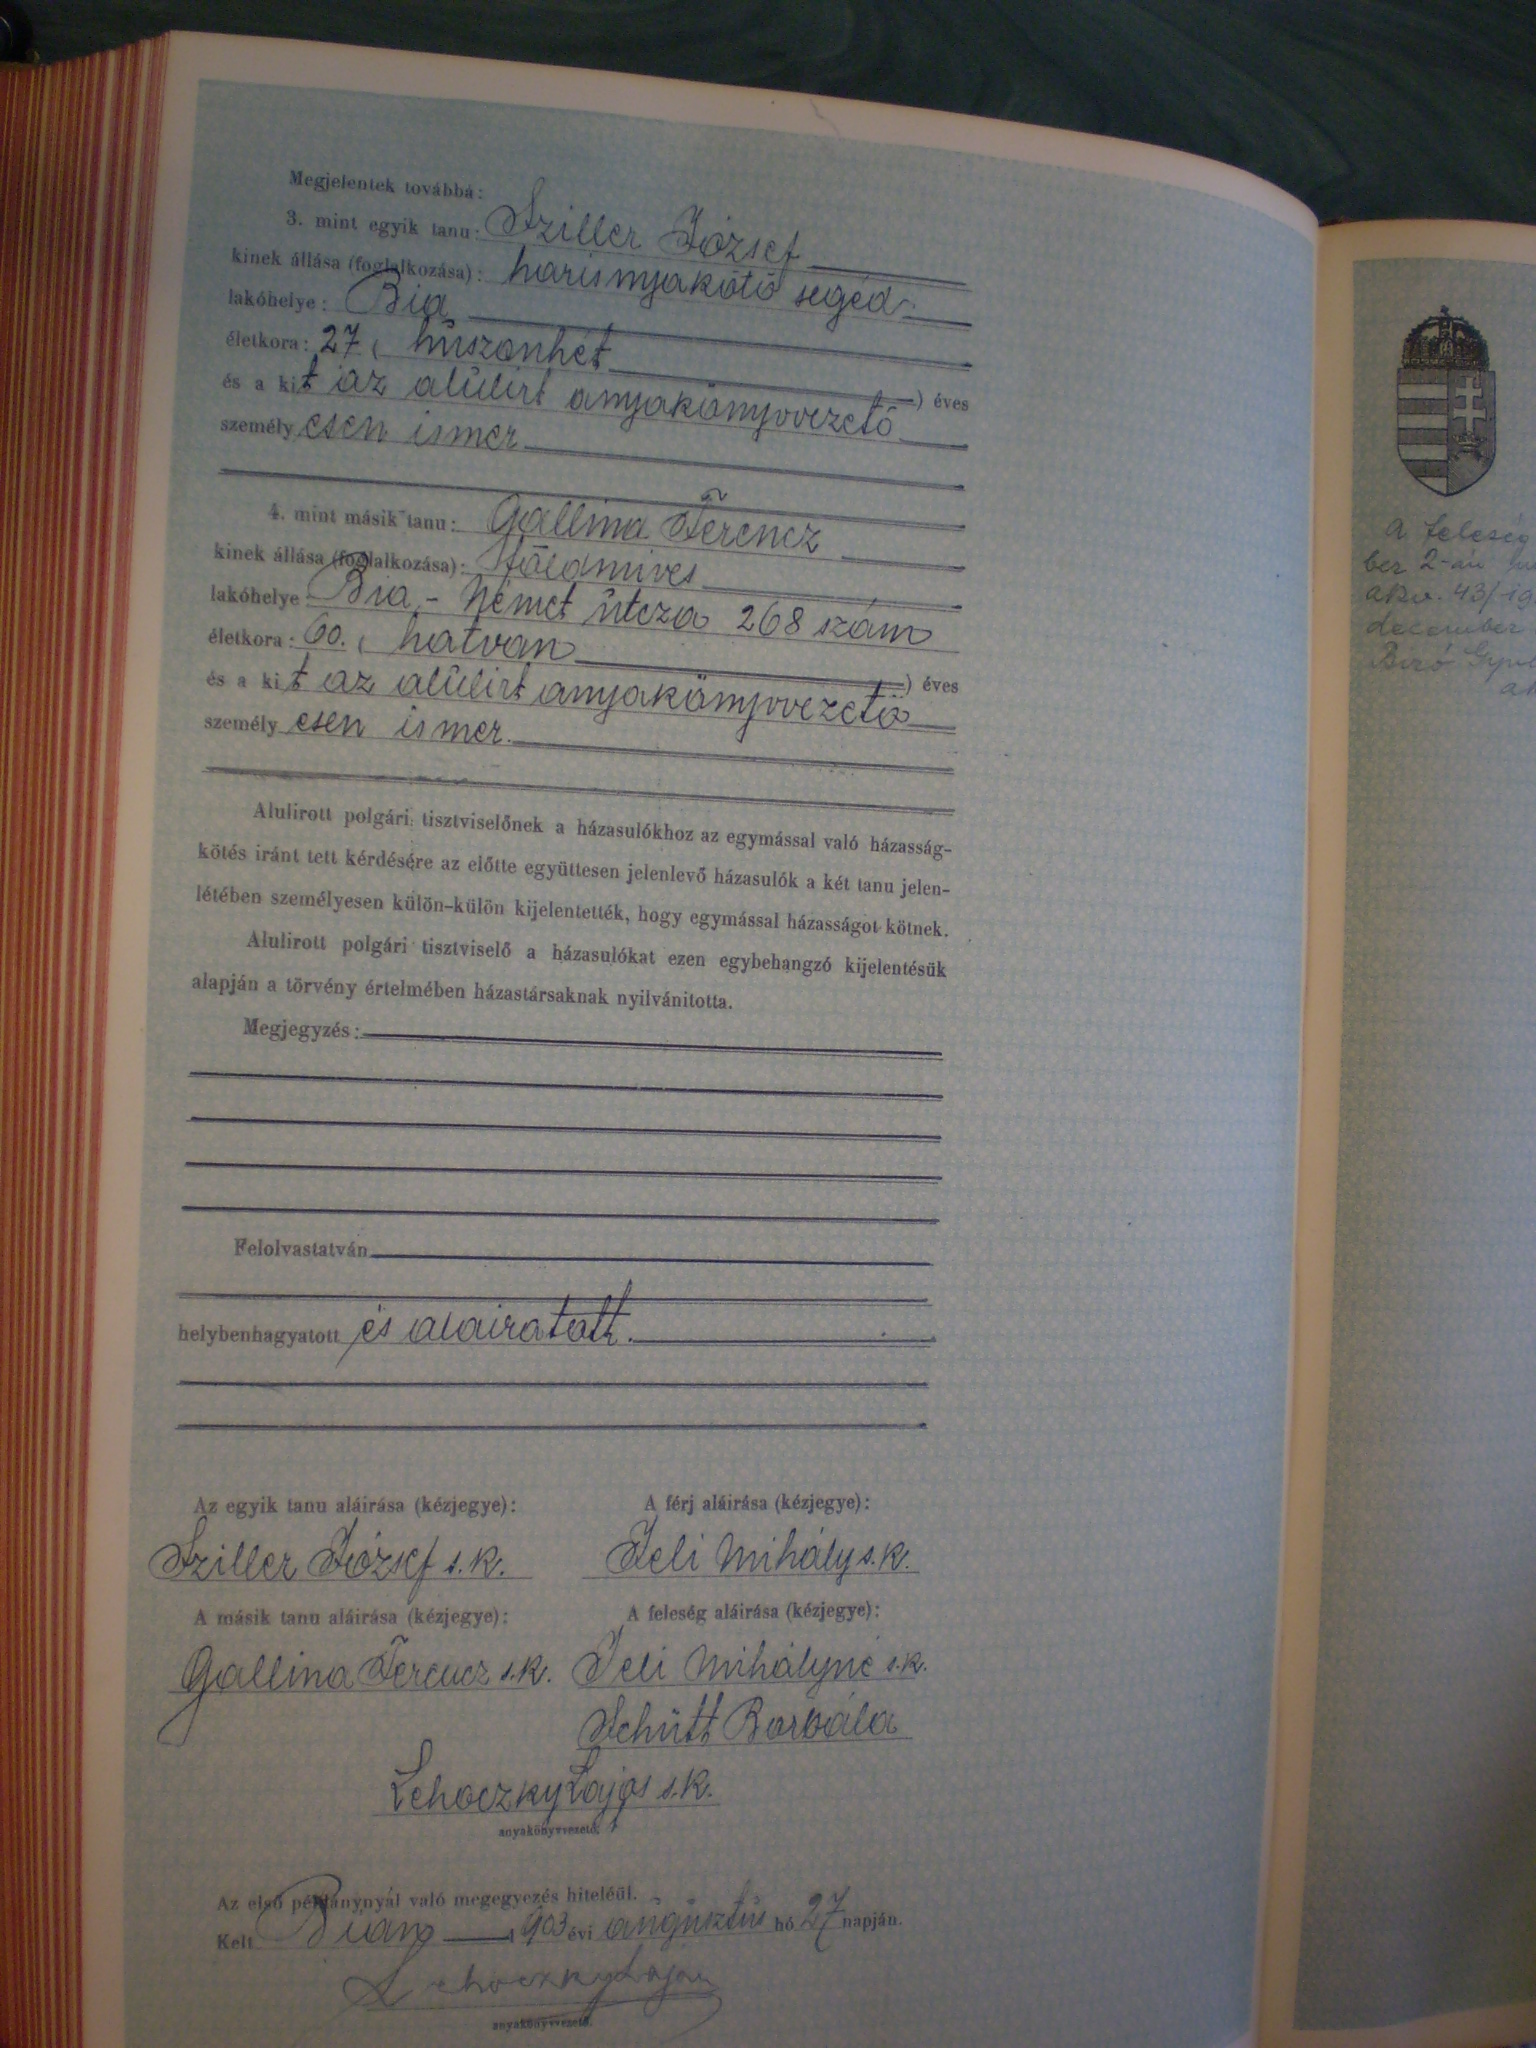 Megjelentek továbbá:
3. mint egyik tanu: Sziller József
kinek állása (foglalkozása): harisnyakötő segéd
lakóhelye: Bia
életkora: 27 ( huszonhét ) éves
és a kit az alulirt anyakönyvvezető
személyesen ismer
4. mint másik tanu: Gallina Ferencz
kinek állása (foglalkozása): földmives
lakóhelye Bia - Német utcza 268 szám
életkora: 60. ( hatvan ) éves
és a kit az alulirt anyakönyvvezető
személyesen ismer.
Alulirott polgári tisztviselőnek a házasulókhoz az egymással való házasság-
kötés iránt tett kérdésére az előtte együttesen jelenlevő házasulók a két tanu jelen-
létében személyesen külön-külön kijelentették, hogy egymással házasságot kötnek.
Alulirott polgári tisztviselő a házasulókat ezen egybehangzó kijelentésük
alapján a törvény értelmében házastársaknak nyilvánitotta.
Megjegyzés:
Felolvastatván
helybenhagyatott és aláiratott.
Az egyik tanu aláirása (kézjegye): A férj aláirása (kézjegye):
Sziller József s.k. Jeli Mihály s.k.
A másik tanu aláirása (kézjegye): A feleség aláirása (kézjegye):
Gallina Ferencz s.k. Jeli Mihályné s.k.
Schütt Borbála
Lehoczky Lajos s.k.
anyakönyvvezető.
Az első példánynyal való megegyezés hiteléül.
Kelt Bián 1903 évi augusztus hó 27 napján.
Lehoczky Lajos
anyakönyvvezető.
a feleség
ber 2-án
akv. 43/19
december
Biró